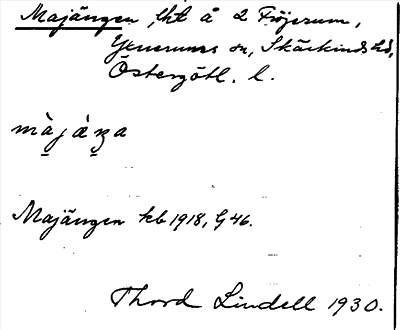 Majängen, lht å 2 Fröjerum,
Yxnerums sn, Skärkinds hd,
Östergötl. l.
màjáŋa
Majängen kb 1918, G 46.
Thord Lindell 1930.